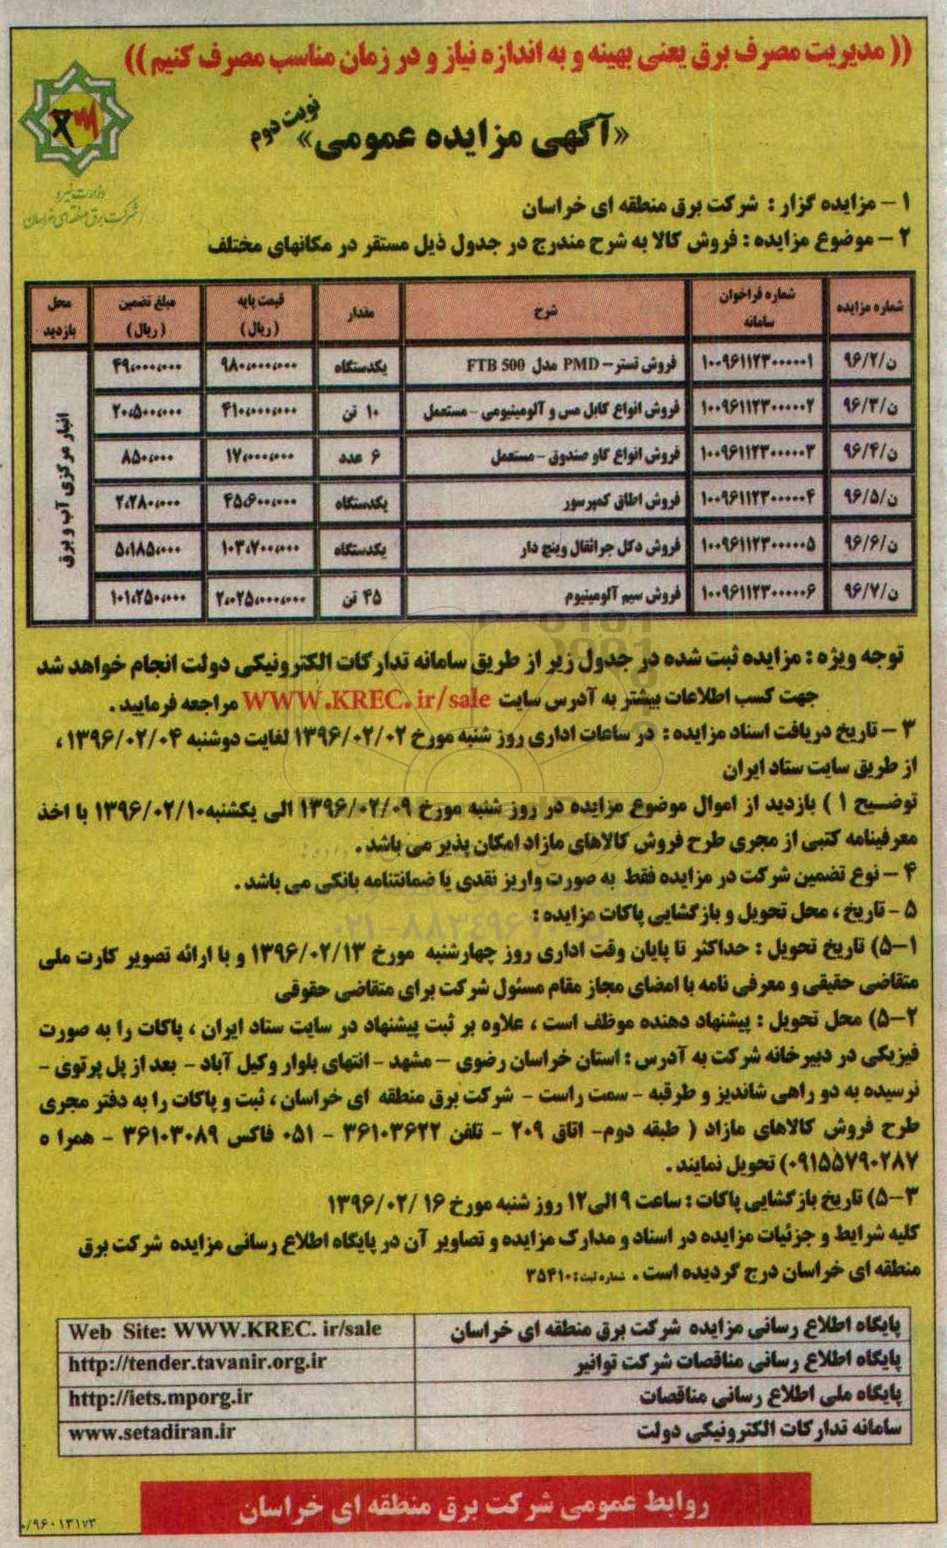 (( مدیریت مصرف برق یعنی بهینه و به اندازه نیاز و در زمان مناسب مصرف کنیم ))
«آگهی مزایده عمومی» نوبت دوم
وزارت نیرو
شرکت برق منطقه ای خراسان
۱ – مزایده گزار : شرکت برق منطقه ای خراسان
۲ – موضوع مزایده : فروش کالا به شرح مندرج در جدول ذیل مستقر در مکانهای مختلف
شماره مزایده | شماره فراخوان سامانه | شرح | مقدار | قیمت پایه (ریال) | مبلغ تضمین (ریال) | محل بازدید
ن/۹۶/۲ | ۱۰۰۹۶۱۱۲۳۰۰۰۰۰۱ | فروش تستر – PMD مدل FTB 500 | یکدستگاه | ۹۸۰،۰۰۰،۰۰۰ | ۴۹،۰۰۰،۰۰۰ | انبار مرکزی آب و برق
ن/۹۶/۳ | ۱۰۰۹۶۱۱۲۳۰۰۰۰۰۲ | فروش انواع کابل مس و آلومینیومی – مستعمل | ۱۰ تن | ۴۱۰،۰۰۰،۰۰۰ | ۲۰،۵۰۰،۰۰۰
ن/۹۶/۴ | ۱۰۰۹۶۱۱۲۳۰۰۰۰۰۳ | فروش انواع گاو صندوق – مستعمل | ۶ عدد | ۱۷،۰۰۰،۰۰۰ | ۸۵۰،۰۰۰
ن/۹۶/۵ | ۱۰۰۹۶۱۱۲۳۰۰۰۰۰۴ | فروش اطاق کمپرسور | یکدستگاه | ۴۵،۶۰۰،۰۰۰ | ۲،۲۸۰،۰۰۰
ن/۹۶/۶ | ۱۰۰۹۶۱۱۲۳۰۰۰۰۰۵ | فروش دکل جراثقال وینچ دار | یکدستگاه | ۱۰۳،۷۰۰،۰۰۰ | ۵،۱۸۵،۰۰۰
ن/۹۶/۷ | ۱۰۰۹۶۱۱۲۳۰۰۰۰۰۶ | فروش سیم آلومینیوم | ۴۵ تن | ۲،۰۲۵،۰۰۰،۰۰۰ | ۱۰۱،۲۵۰،۰۰۰
توجه ویژه : مزایده ثبت شده در جدول زیر از طریق سامانه تدارکات الکترونیکی دولت انجام خواهد شد
جهت کسب اطلاعات بیشتر به آدرس سایت WWW.KREC.ir/sale مراجعه فرمایید .
۳ – تاریخ دریافت اسناد مزایده : در ساعات اداری روز شنبه مورخ ۱۳۹۶/۰۲/۰۲ لغایت دوشنبه ۱۳۹۶/۰۲/۰۴ ،
از طریق سایت ستاد ایران
توضیح ۱ ) بازدید از اموال موضوع مزایده در روز شنبه مورخ ۱۳۹۶/۰۲/۰۹ الی یکشنبه ۱۳۹۶/۰۲/۱۰ با اخذ
معرفینامه کتبی از مجری طرح فروش کالاهای مازاد امکان پذیر می باشد .
۴ – نوع تضمین شرکت در مزایده فقط به صورت واریز نقدی یا ضمانتنامه بانکی می باشد .
۵ – تاریخ ، محل تحویل و بازگشایی پاکات مزایده :
۵–۱) تاریخ تحویل : حداکثر تا پایان وقت اداری روز چهارشنبه مورخ ۱۳۹۶/۰۲/۱۳ و با ارائه تصویر کارت ملی
متقاضی حقیقی و معرفی نامه با امضای مجاز مقام مسئول شرکت برای متقاضی حقوقی
۵–۲) محل تحویل : پیشنهاد دهنده موظف است ، علاوه بر ثبت پیشنهاد در سایت ستاد ایران ، پاکات را به صورت
فیزیکی در دبیرخانه شرکت به آدرس : استان خراسان رضوی – مشهد – انتهای بلوار وکیل آباد – بعد از پل پرتوی –
نرسیده به دو راهی شاندیز و طرقبه – سمت راست – شرکت برق منطقه ای خراسان ، ثبت و پاکات را به دفتر مجری
طرح فروش کالاهای مازاد ( طبقه دوم– اتاق ۲۰۹ – تلفن ۳۶۱۰۳۶۲۲ – ۰۵۱ فاکس ۳۶۱۰۳۰۸۹ – همراه
۰۹۱۵۵۷۹۰۲۸۷) تحویل نمایند .
۵–۳) تاریخ بازگشایی پاکات : ساعت ۹ الی ۱۲ روز شنبه مورخ ۱۶ /۱۳۹۶/۰۲
کلیه شرایط و جزئیات مزایده در اسناد و مدارک مزایده و تصاویر آن در پایگاه اطلاع رسانی مزایده شرکت برق
منطقه ای خراسان درج گردیده است . شماره ثبت : ۳۵۴۱۰
پایگاه اطلاع رسانی مزایده شرکت برق منطقه ای خراسان | Web Site: WWW.KREC. ir/sale
پایگاه اطلاع رسانی مناقصات شرکت توانیر | http://tender.tavanir.org.ir
پایگاه ملی اطلاع رسانی مناقصات | http://iets.mporg.ir
سامانه تدارکات الکترونیکی دولت | www.setadiran.ir
روابط عمومی شرکت برق منطقه ای خراسان
۰/۹۶۰۱۳۱۷۳